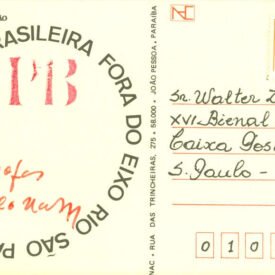 ão
BRASILEIRA FORA DO EIXO RIO SÃO PA
PB
NAC - RUA DAS TRINCHEIRAS, 275 - 58.000 - JOÃO PESSOA, PARAÍBA
Sr. Walter Z
XVI Bienal
Caixa Pos
S. Paulo -
0 1 0